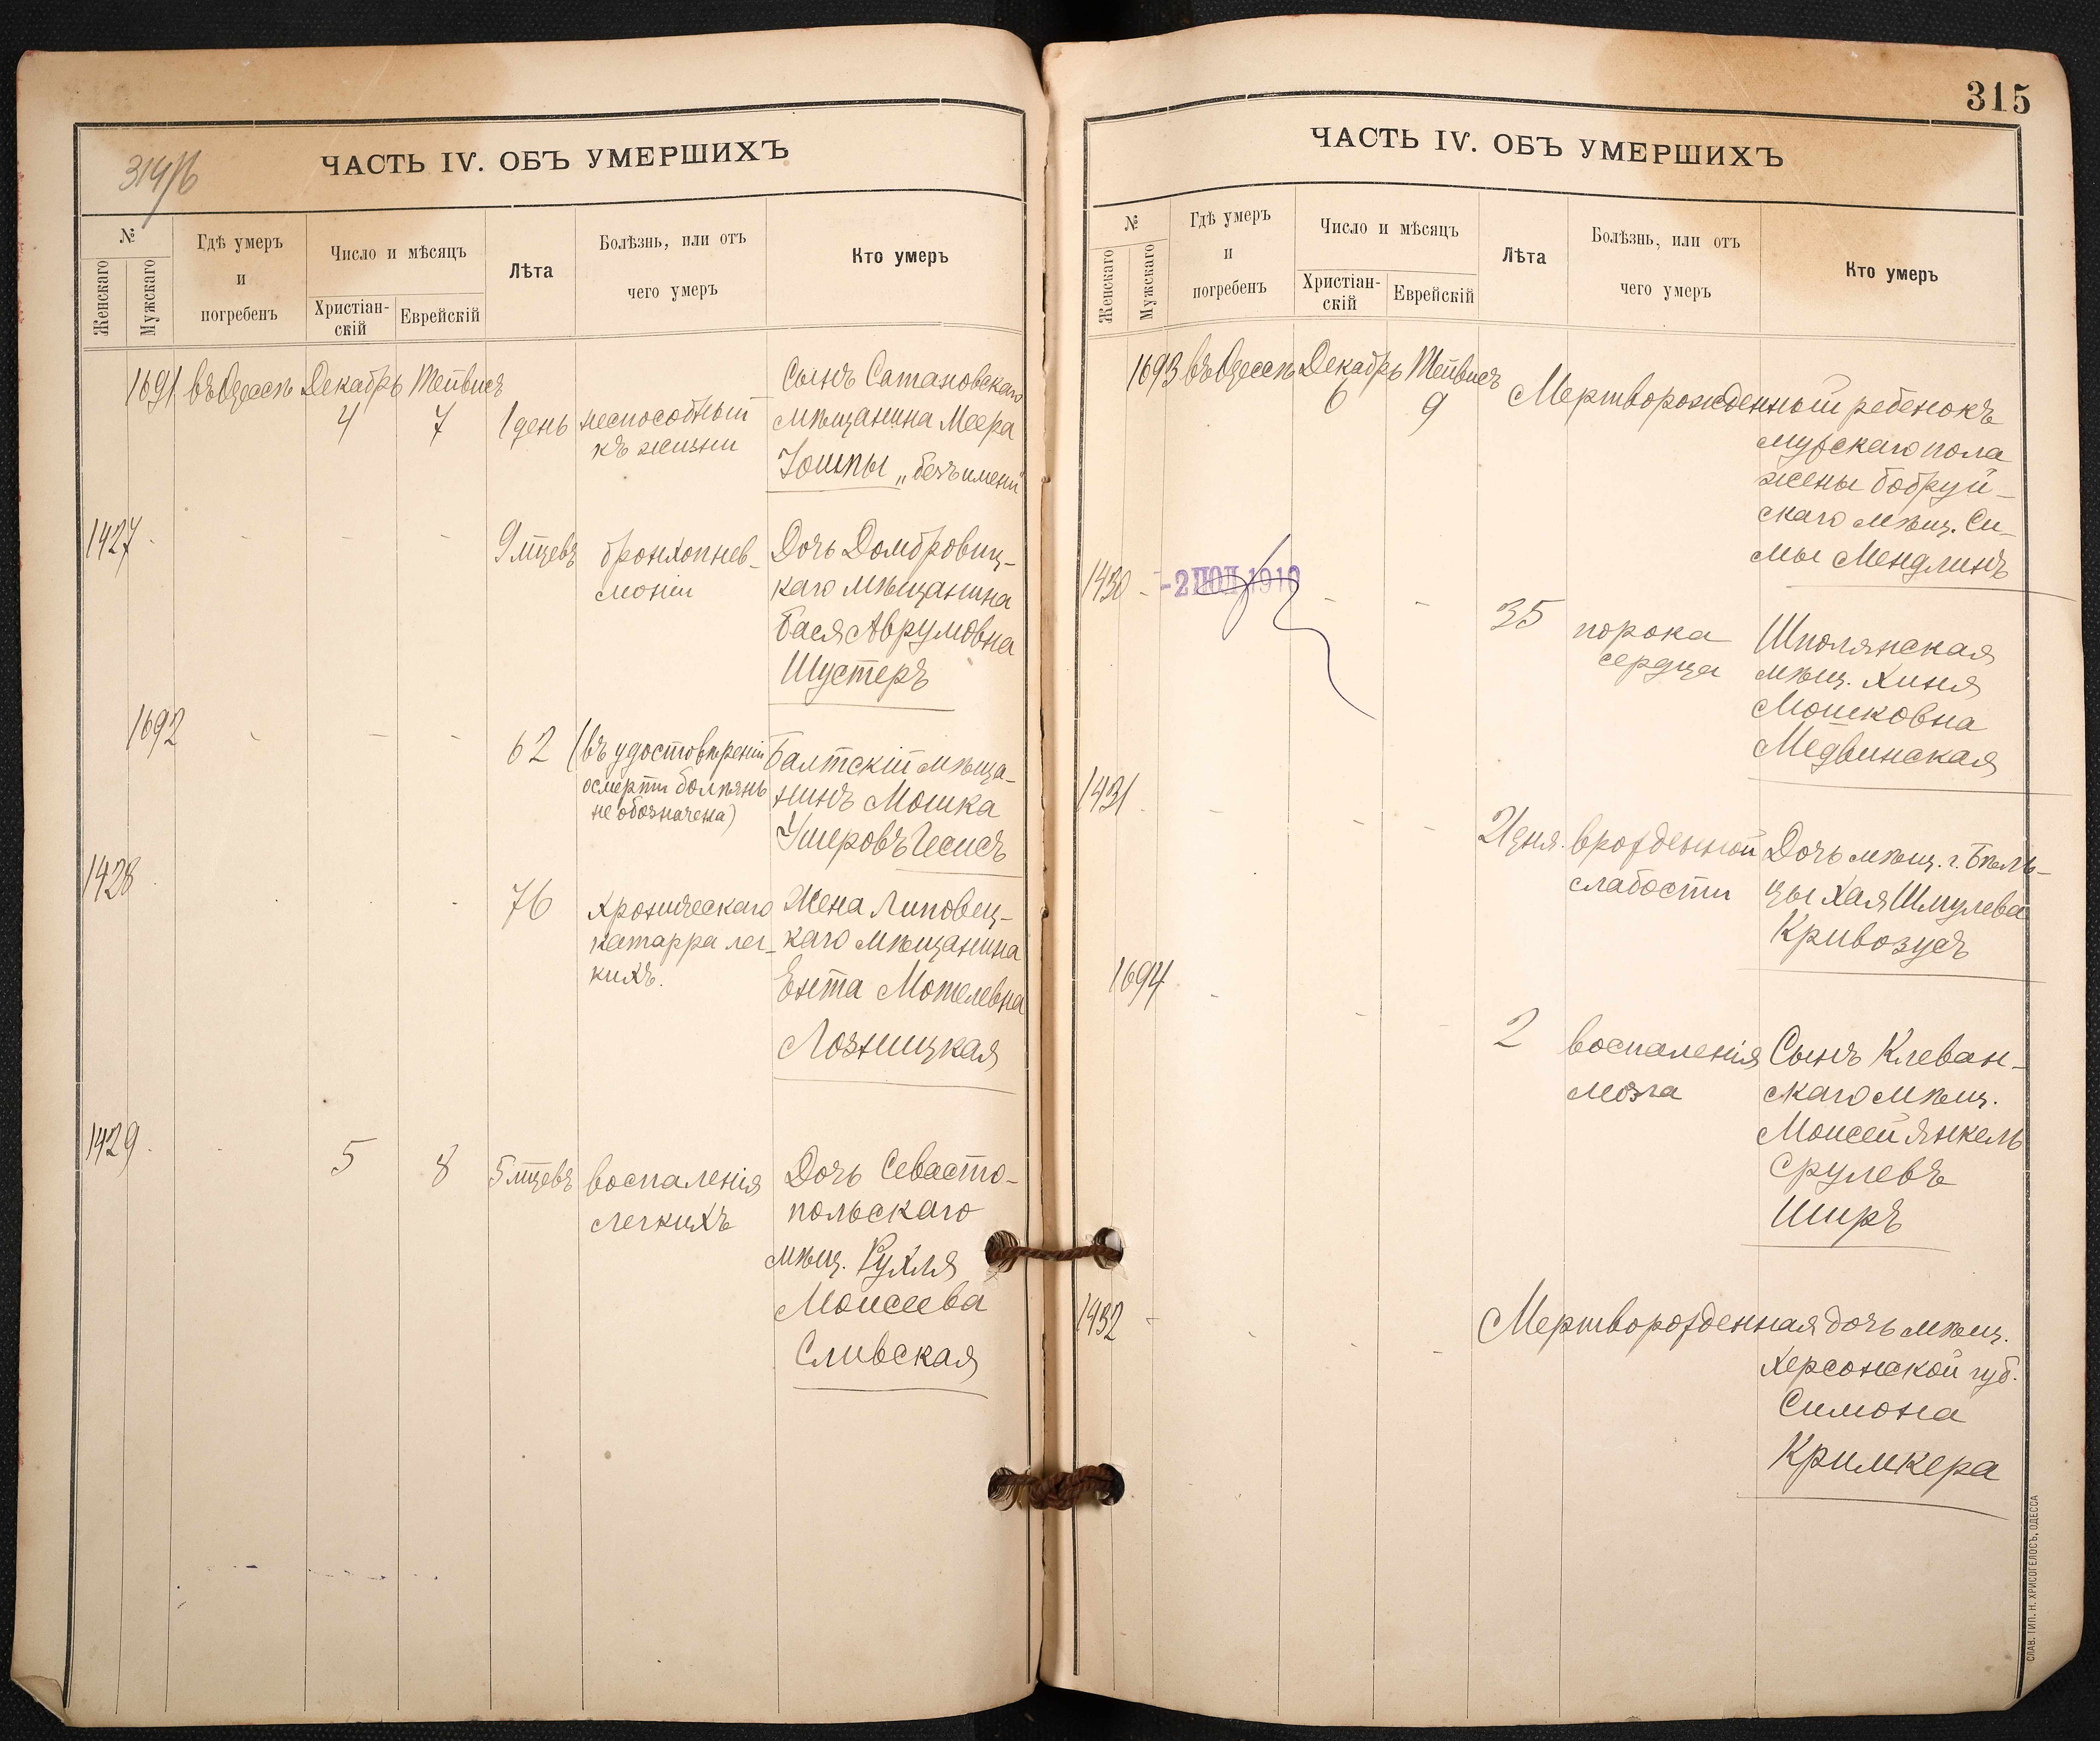 314/б
ЧАСТЬ IV. ОБЪ УМЕРШИХЪ
№
Женскаго
Мужскаго
Гдѣ умеръ
и
погребенъ
Число и мѣсяцъ
Христіан-
скій
Еврейскій
Лѣта
Болѣзнь, или отъ
чего умеръ
Кто умеръ
1691 въ Одессѣ Декабрь Тейвисъ
4 7 1 день неспособный
къ жизни
Сынъ Сатановскаго
мѣщанина Меера
Іошпы „безъ имени"
1427 - - - - 9 мцевъ бронхопнев-
моніи
Дочь Домбровиц-
каго мѣщанина
Бася Аврумовна
Шустеръ
1692 - - - 62 (въ удостовѣреніи
о смерти болѣзнь
не обозначена)
Балтскій мѣща-
нинъ Мошка
Ушеровъ Чесисъ
1428 - - 76 хроническаго
катарра лег-
кихъ.
Жена Липовец-
каго мѣщанина
Ента Мотелевна
Лозницкая
1429 - - 5 8 5 мцевъ воспаленія
легкихъ
Дочь Севасто-
польскаго
мѣщ. Рухля
Моисеева
Сливская
315
ЧАСТЬ IV. ОБЪ УМЕРШИХЪ
№
Женскаго
Мужскаго
Гдѣ умеръ
и
погребенъ
Число и мѣсяцъ
Христіан-
скій
Еврейскій
Лѣта
Болѣзнь, или отъ
чего умеръ
Кто умеръ
1693 въ Одессѣ Декабрь Тейвисъ
6 9 Мертворожденный ребенокъ
мужскаго пола
жены бобруй-
скаго мѣщ. Си-
мы Мендлинъ
1430 - -2 ПОЛ 1910 - - 35 порока
сердца
Шполянская
мѣщ. Хиня
Мошковна
Медвинская
1431 - - - 2 дня. врожденной
слабости
Дочь мѣщ. г. Бѣль-
цы Хая Шмулева
Кривозусъ
1694 - - - 2 воспаленія
мозга
Сынъ Клеван-
скаго мѣщ.
Моисей Янкель
Срулевъ
Ширъ
1432 - - - - Мертворожденная дочь мѣщ.
Херсонской губ.
Симона
Кримкера
СЛАВ. ТИП. Н. ХРИСОГЕЛОСЪ, ОДЕССА